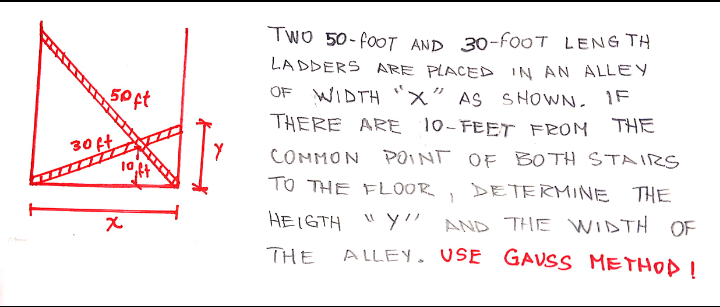 TWO 50-FOOT AND 30-FOOT LENGTH
LADDERS ARE PLACED IN AN ALLEY
OF WIDTH "X" AS SHOWN. IF
THERE ARE 10-FEET FROM THE
COMMON POINT OF BOTH STAIRS
TO THE FLOOR, DETERMINE THE
HEIGTH "Y" AND THE WIDTH OF
THE ALLEY. USE GAUSS METHOD!
50 ft
30 ft
10 ft
y
x